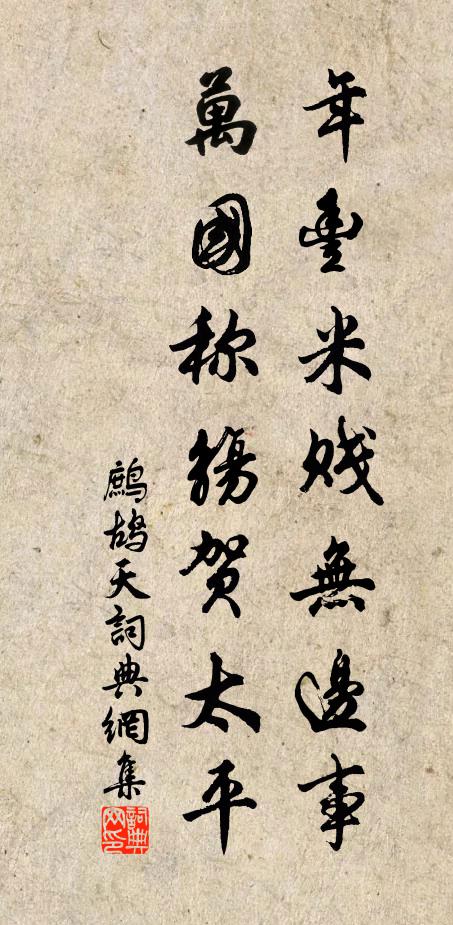 年豐米賤無邊事
萬國称觴賀太平
鷓鴣天詞典網集
詞典
网印